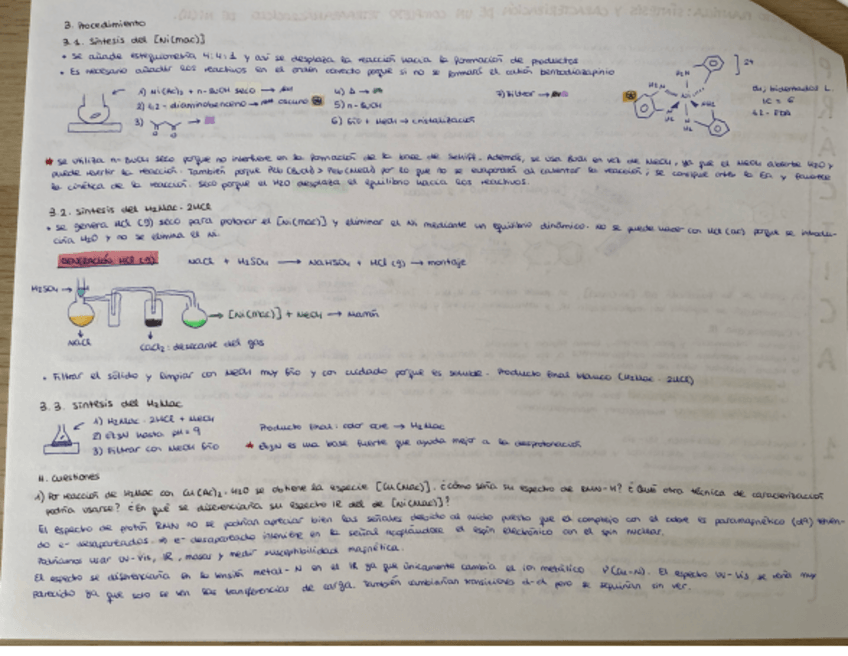 3. Procedimiento
3.1. Síntesis del [Ni(mac)]
• Se añade estequiometría 4:4:1 y así se desplaza la reacción hacia la formación de productos
• Es necesario añadir los reactivos en el orden correcto porque si no se formará el catión benzodiazepinio
1) Ni(Ac)2 + n-BuOH seco →
2) 1,2-diaminobenceno → oscuro
3)
4) Δ →
5) n-BuOH
6) frío + MeOH → cristalización
7) Filtrar →
] 2+
H2N
NH2
Ni
bidentados L.
IC = 6
* Se utiliza n-BuOH seco porque no interfiere en la formación de la base de Schiff. Además, se usa BuOH en vez de MeOH, ya que el MeOH absorbe H2O y
puede revertir la reacción. También porque Peb (BuOH) > Peb (MeOH) por lo que no se evaporará al calentar la reacción, se consigue antes la Ea y favorece
la cinética de la reacción. Seco porque el H2O desplaza el equilibrio hacia los reactivos.
3.2. Síntesis del H2Mac · 2HCl
• Se genera HCl (g) seco para protonar el [Ni(mac)] y eliminar el Ni mediante un equilibrio dinámico. No se puede hacer con HCl (ac) porque se introdu-
ciría H2O y no se elimina el Ni.
GENERACIÓN HCl (g)
NaCl + H2SO4 → NaHSO4 + HCl (g) → montaje
H2SO4 →
→ [Ni(mac)] + MeOH → marrón
NaCl
CaCl2: desecante del gas
• Filtrar el sólido y limpiar con MeOH muy frío y con cuidado porque es soluble. Producto final blanco (H2Mac · 2HCl)
3.3. Síntesis del H2Mac
1) H2Mac · 2HCl + MeOH
2) Et3N hasta pH = 9
3) Filtrar con MeOH frío
Producto final: color ocre → H2Mac
* Et3N es una base fuerte que ayuda mejor a la desprotonación
4. Cuestiones
1) Por reacción de H2Mac con Cu(Ac)2 · H2O se obtiene la especie [Cu(Mac)]. ¿Cómo sería su espectro de RMN-H? ¿Qué otra técnica de caracterización
podría usarse? ¿En qué se diferenciaría su espectro IR del de [Ni(mac)]?
El espectro de protón RMN no se podrían apreciar bien las señales debido al ruido puesto que el complejo con el cobre es paramagnético (d9) tenien-
do e- desapareados. ⇒ e- desapareado interfiere en la señal acoplándose el espín electrónico con el spin nuclear.
Podríamos usar UV-Vis, IR, masas y medir susceptibilidad magnética.
El espectro se diferenciaría en la tensión metal-N en el IR ya que únicamente cambia el ion metálico ν(Cu-N). El espectro UV-Vis se vería muy
parecido ya que solo se ven las transferencias de carga. También cambiarían transiciones d-d pero se seguirían sin ver.